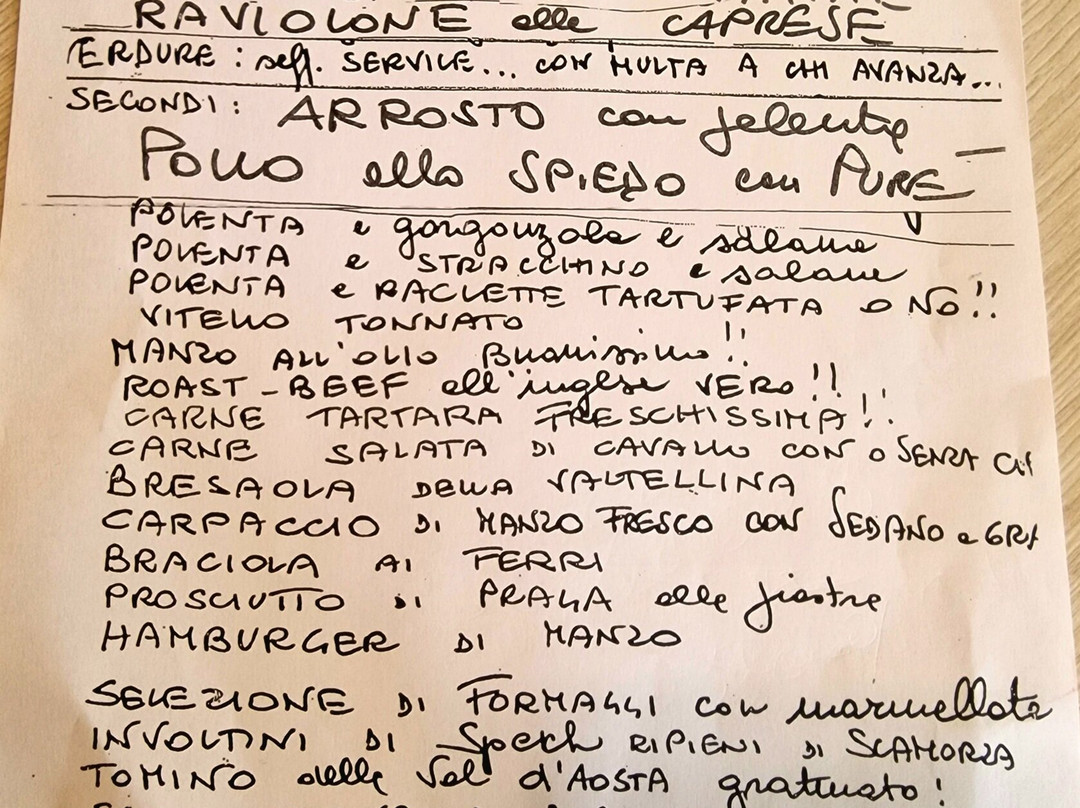 RAVIOLONE alla CAPRESE
VERDURE: self. SERVICE... CON MULTA A CHI AVANZA...
SECONDI: ARROSTO con
POLLO allo SPIEDO con PURE
POLENTA e gorgonzola e salame
POLENTA e STRACCHINO e salame
POLENTA e RACLETTE TARTUFATA O NO!!
VITELLO TONNATO
MANZO ALL'OLIO Buonissimo!!
ROAST-BEEF all'inglese VERO!!
CARNE TARTARA FRESCHISSIMA!!
CARNE SALATA DI CAVALLO CON O SENZA
BRESAOLA DELLA VALTELLINA
CARPACCIO DI MANZO FRESCO CON SEDANO e GRA
BRACIOLA AI FERRI
PROSCIUTTO DI PRAGA alla piastra
HAMBURGER DI MANZO
SELEZIONE DI FORMAGGI con marmellata
INVOLTINI DI Speck RIPIENI DI SCAMORZA
TOMINO della Val d'AOSTA gratinato!